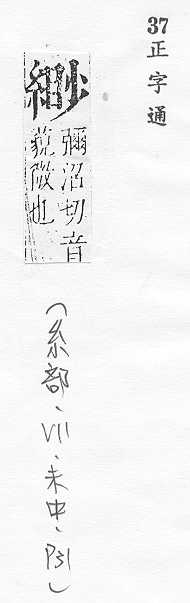 37 正字通
彌沼切音
藐微也
(糸部、VII、未中、P31)